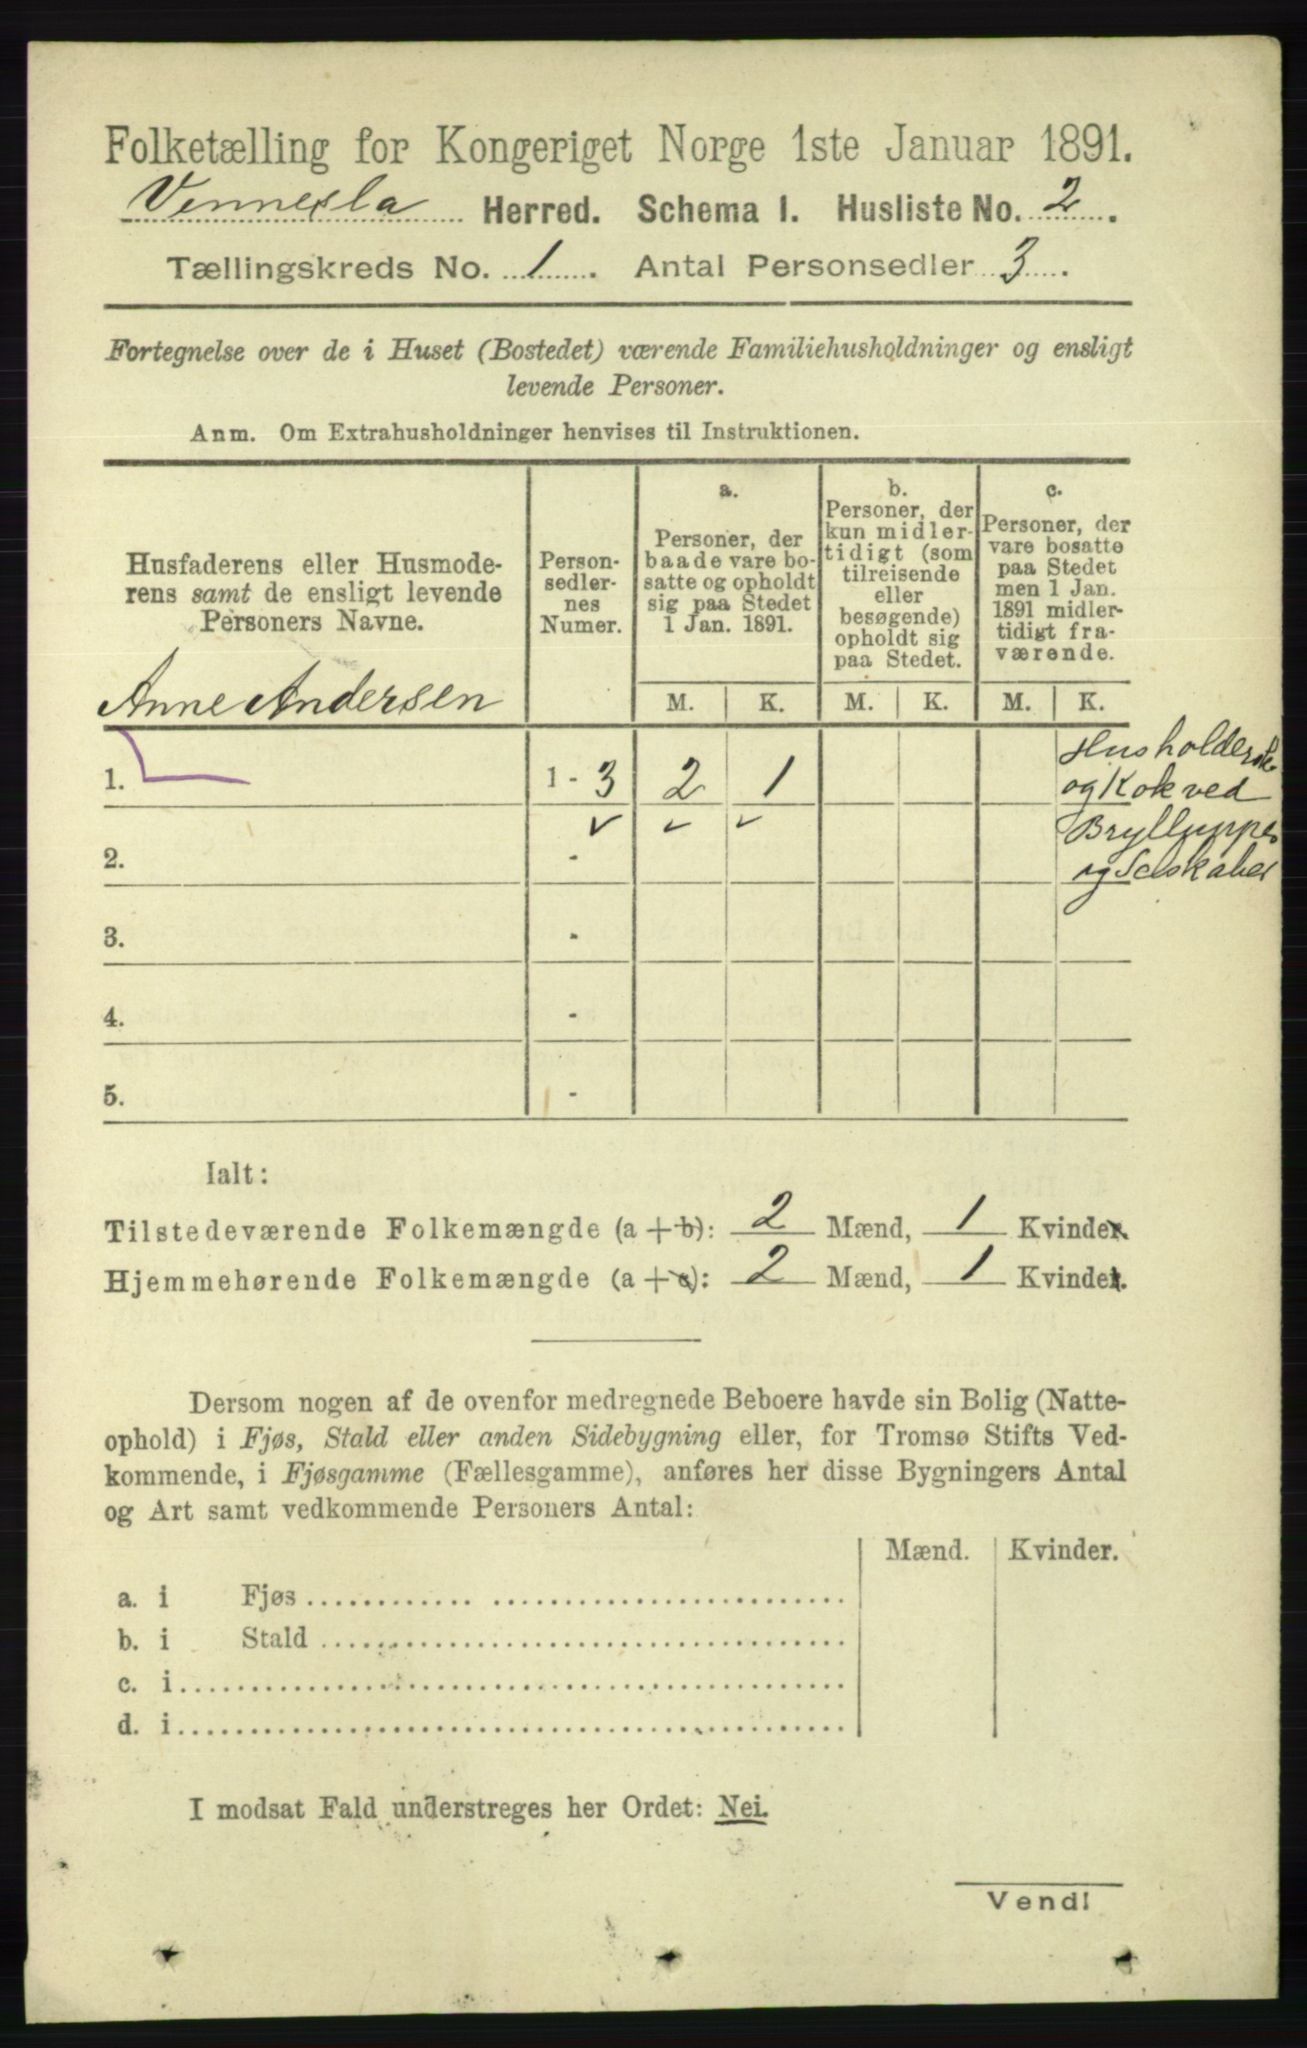 Folketælling for Kongeriget Norge 1ste Januar 1891.
Vennesla Herred. Schema I. Husliste No. 2.
Tællingskreds No. 1. Antal Personsedler 3.
Fortegnelse over de i Huset (Bostedet) værende Familiehusholdninger og ensligt
levende Personer.
Anm. Om Extrahusholdninger henvises til Instruktionen.
Husfaderens eller Husmode-
rens samt de ensligt levende
Personers Navne.
Person-
sedler-
nes
Numer.
a.
Personer, der
baade vare bo-
satte og opholdt
sig paa Stedet
1 Jan. 1891.
b.
Personer, der
kun midler-
tidigt (som
tilreisende
eller
besøgende)
opholdt sig
paa Stedet.
c.
Personer, der
vare bosatte
paa Stedet
men 1 Jan.
1891 midler-
tidigt fra-
værende.
M. K. M. K. M. K.
Anne Andersen
1. 1 - 3 2 1
Husholdersk
og Kok ved
Brylluppes
og Selskaber
2. -
3. -
4. -
5. -
Ialt:
Tilstedeværende Folkemængde (a + b): 2 Mænd, 1 Kvinder.
Hjemmehørende Folkemængde (a + c): 2 Mænd, 1 Kvinder.
Dersom nogen af de ovenfor medregnede Beboere havde sin Bolig (Natte-
ophold) i Fjøs, Stald eller anden Sidebygning eller, for Tromsø Stifts Ved-
kommende, i Fjøsgamme (Fællesgamme), anføres her disse Bygningers Antal
og Art samt vedkommende Personers Antal:
Mænd. Kvinder.
a. i Fjøs
b. i Stald
c. i
d. i
I modsat Fald understreges her Ordet: Nei.
Vend!